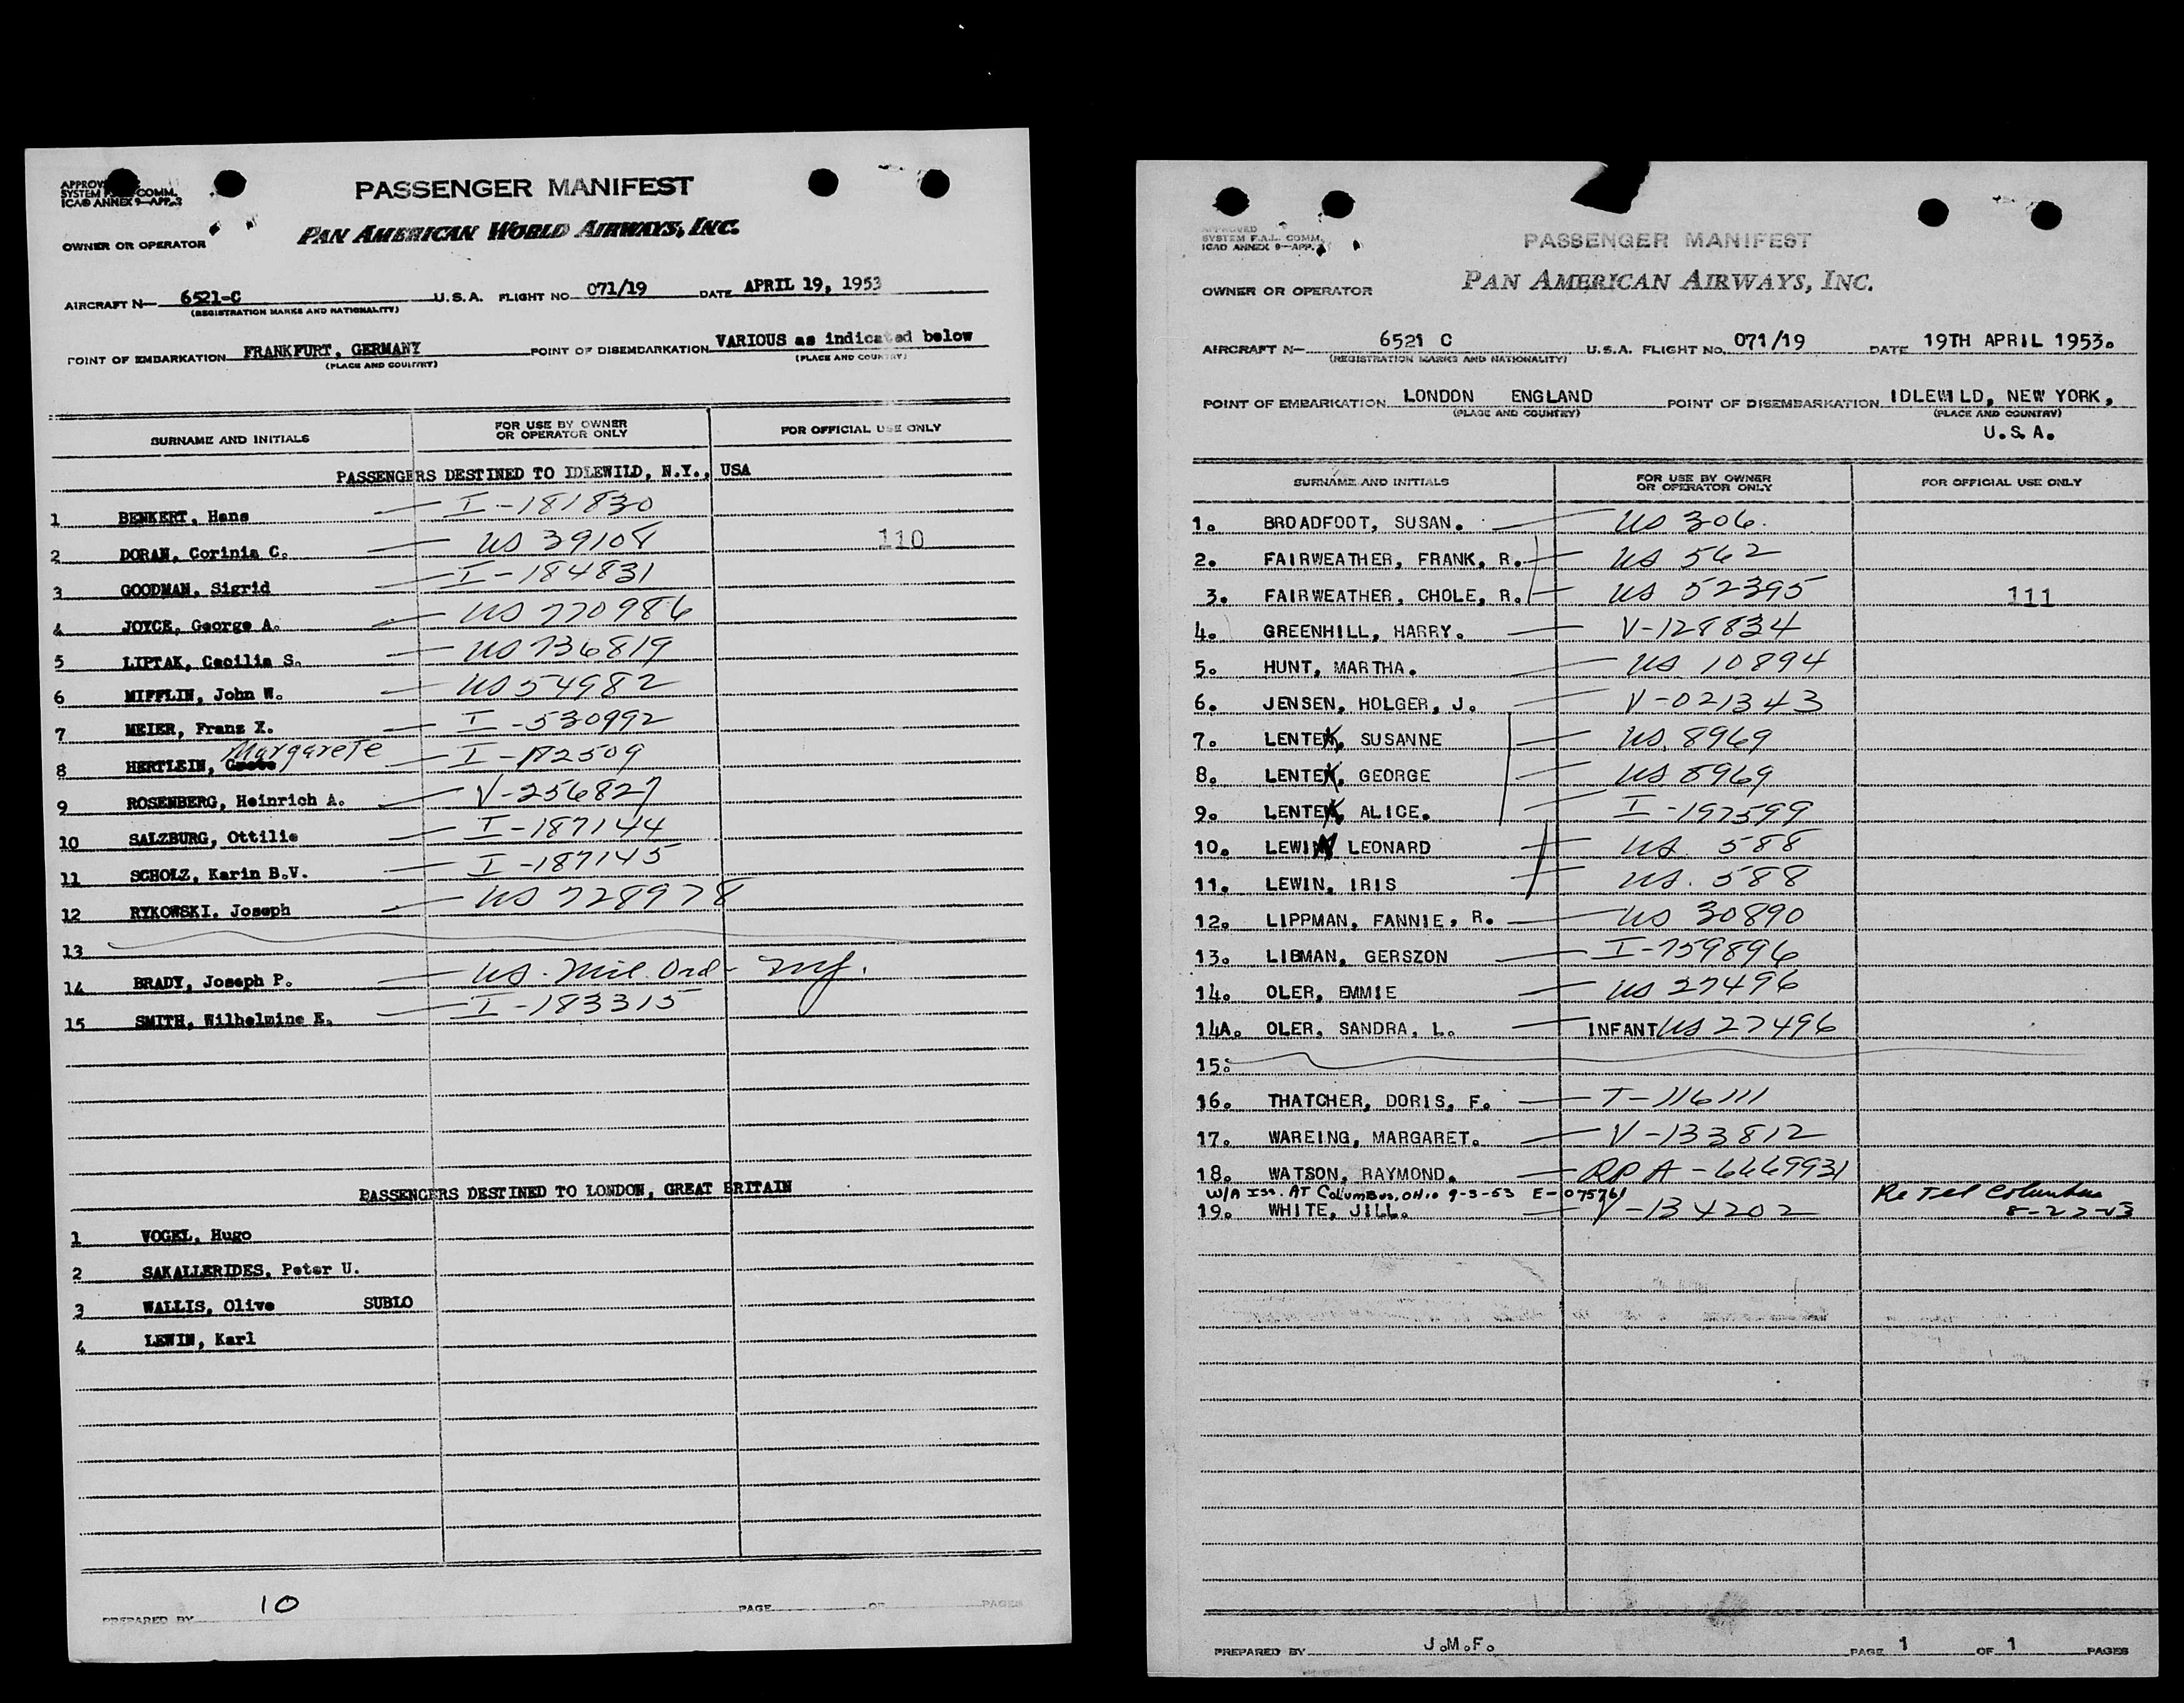 PASSENGER MANIFEST
PAN AMERICAN WORLD AIRWAYS, INC.
SYSTEM COMM.
ICAO ANNEX 9—APP. 3
OWNER OR OPERATOR
AIRCRAFT N— 6521-C U.S.A. FLIGHT NO. 071/19 DATE APRIL 19, 1953
(REGISTRATION MARKS AND NATIONALITY)
POINT OF EMBARKATION FRANKFURT, GERMANY POINT OF DISEMBARKATION VARIOUS as indicated below
(PLACE AND COUNTRY) (PLACE AND COUNTRY)
SURNAME AND INITIALS FOR USE BY OWNER OR OPERATOR ONLY FOR OFFICIAL USE ONLY
PASSENGERS DESTINED TO IDLEWILD, N.Y., USA
1 BENKERT, Hans I-181830
2 DORAN, Corinia C. US 39108 110
3 GOODMAN, Sigrid I-184831
4 JOYCE, George A. US 770986
5 LIPTAK, Cecilia S. US 736819
6 MIFFLIN, John W. US 54982
7 MEIER, Franz X. I-530992
Margarete
8 HERTLEIN, I-182509
9 ROSENBERG, Heinrich A. V-256827
10 SALZBURG, Ottilie I-187144
11 SCHOLZ, Karin B.V. I-187145
12 RYKOWSKI, Joseph US 728978
13
14 BRADY, Joseph P. US. Mil. Ord-
15 SMITH, Wilhelmine E. I-183315
PASSENGERS DESTINED TO LONDON, GREAT BRITAIN
1 VOGEL, Hugo
2 SAKALLERIDES, Peter U.
3 WALLIS, Olive SUBLO
4 LEWIN, Karl
10
PREPARED BY PAGE OF PAGES
APPROVED
SYSTEM F.A.L. COMM.
ICAO ANNEX 9—APP.
PASSENGER MANIFEST
PAN AMERICAN AIRWAYS, INC.
OWNER OR OPERATOR
AIRCRAFT N— 6521 C U.S.A. FLIGHT NO. 071/19 DATE 19TH APRIL 1953.
(REGISTRATION MARKS AND NATIONALITY)
POINT OF EMBARKATION LONDON ENGLAND POINT OF DISEMBARKATION IDLEWILD, NEW YORK,
(PLACE AND COUNTRY) (PLACE AND COUNTRY)
U.S.A.
SURNAME AND INITIALS FOR USE BY OWNER OR OPERATOR ONLY FOR OFFICIAL USE ONLY
1. BROADFOOT, SUSAN. US 306.
2. FAIRWEATHER, FRANK, R. US 562
3. FAIRWEATHER, CHOLE, R. US 52395 111
4. GREENHILL, HARRY. V-128834
5. HUNT, MARTHA. US 10894
6. JENSEN, HOLGER, J. V-021343
7. LENTEK, SUSANNE US. 8969
8. LENTEK, GEORGE US 8969
9. LENTEK, ALICE. I-197599
10. LEWIN LEONARD US. 588
11. LEWIN, IRIS US. 588
12. LIPPMAN, FANNIE, R. US 30890
13. LIBMAN, GERSZON I-759896
14. OLER, EMMIE US 27496
14A. OLER, SANDRA, L. INFANT US 27496
15.
16. THATCHER, DORIS, F. T-116111
17. WAREING, MARGARET. V-133812
18. WATSON, RAYMOND. RP A-6669931
W/A Iss. AT Columbus, Ohio 9-3-53 E-075761 Re Tel Columbus
19. WHITE, JILL. V-134202 8-22-53
PREPARED BY J.M.F. PAGE 1 OF 1 PAGES